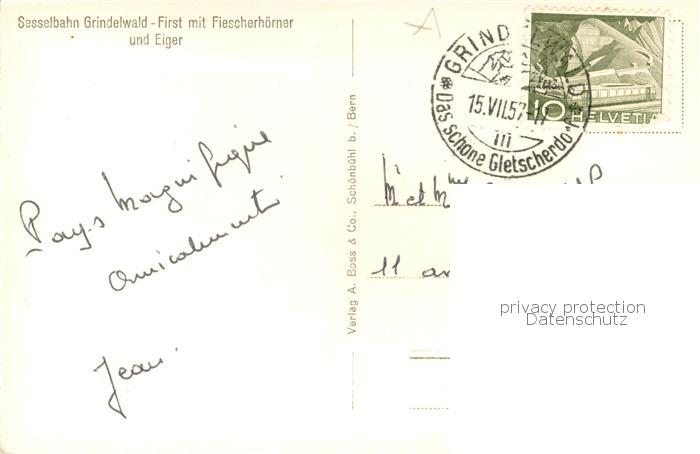 Sesselbahn Grindelwald - First mit Fiescherhörner
und Eiger
Pays Magnifique
Amicalement
Jean.
Verlag A. Boss & Co., Schönbühl b. / Bern
GRINDELWALD
15.VII.57-17
Das schöne Gletscherdorf
10 HELVETIA
M et Mme
11
privacy protection
Datenschutz